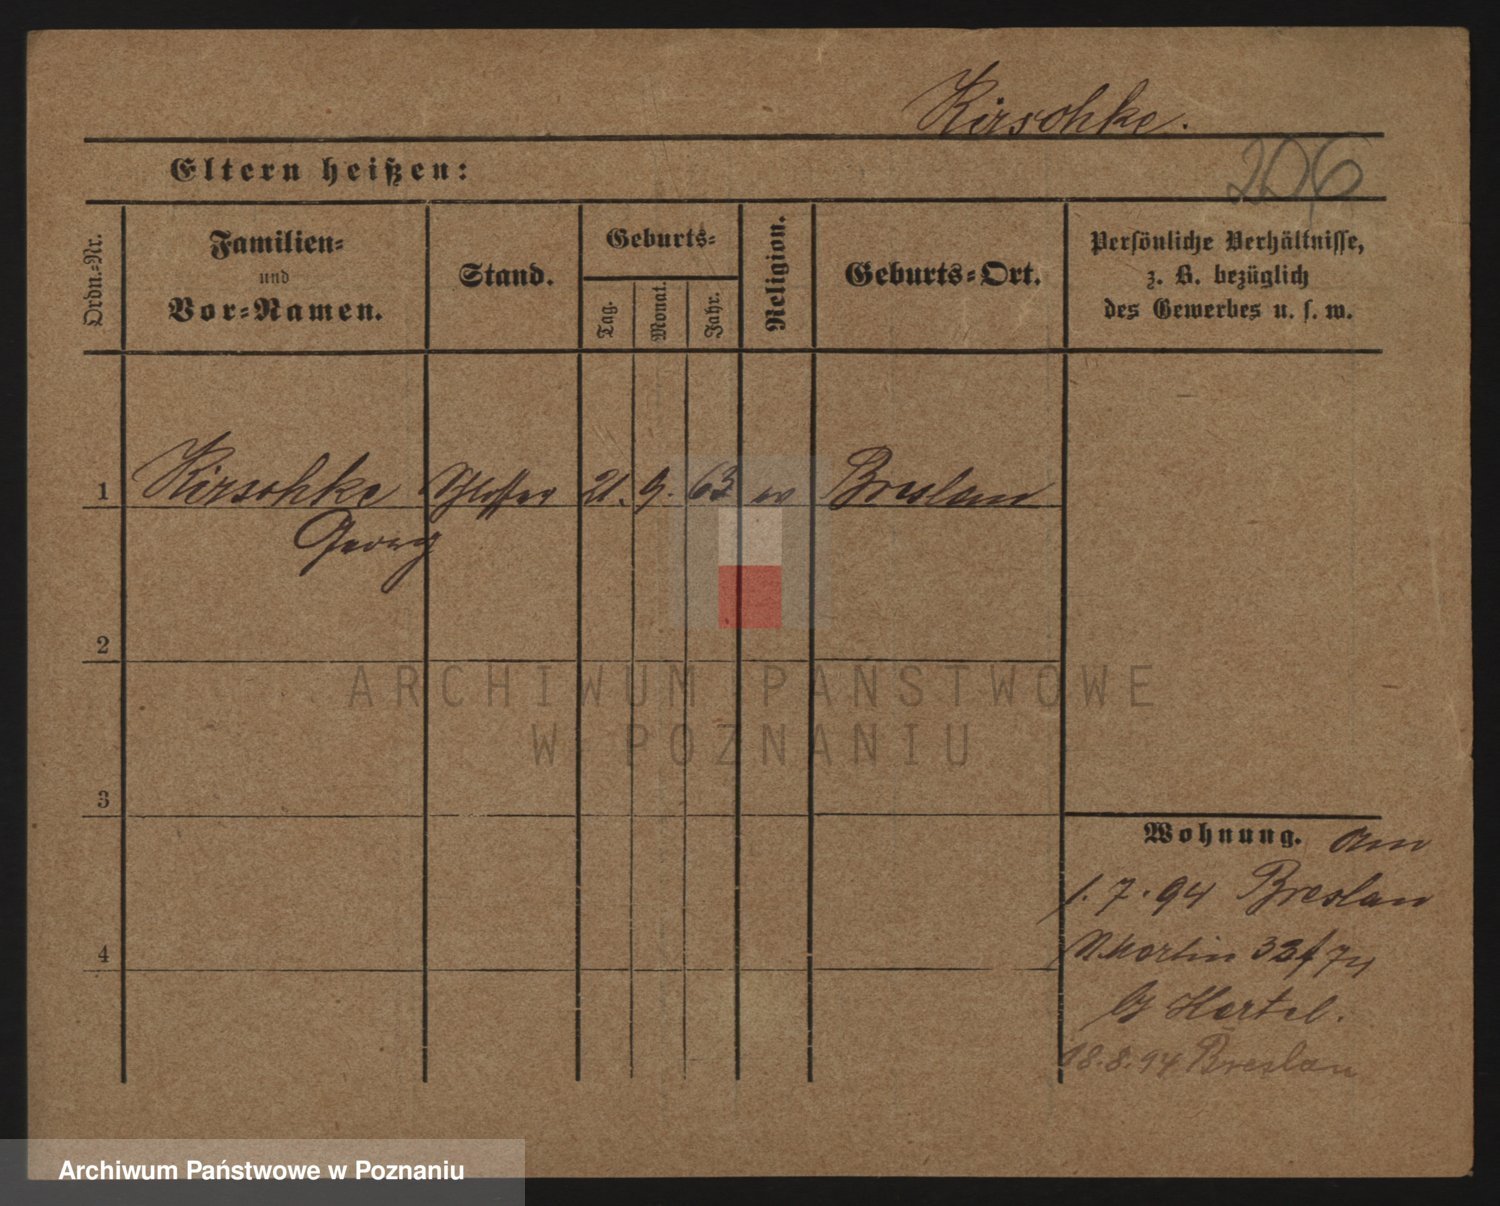 Kirschke.
Eltern heißen:
206
Ordn.-Nr.
Familien-
und
Vor-Namen.
Stand.
Geburts-
Tag.
Monat.
Jahr.
Religion.
Geburts-Ort.
Persönliche Verhältnisse,
z. B. bezüglich
des Gewerbes u. s. w.
1 Kirschke Schlosser 21. 9. 63 Breslau
Georg
2
3
4
Wohnung. am
1. 7. 94 Breslau
Martin 74
Hertel.
18. 8. 94 Breslau
ARCHIWUM PAŃSTWOWE
W POZNANIU
Archiwum Państwowe w Poznaniu